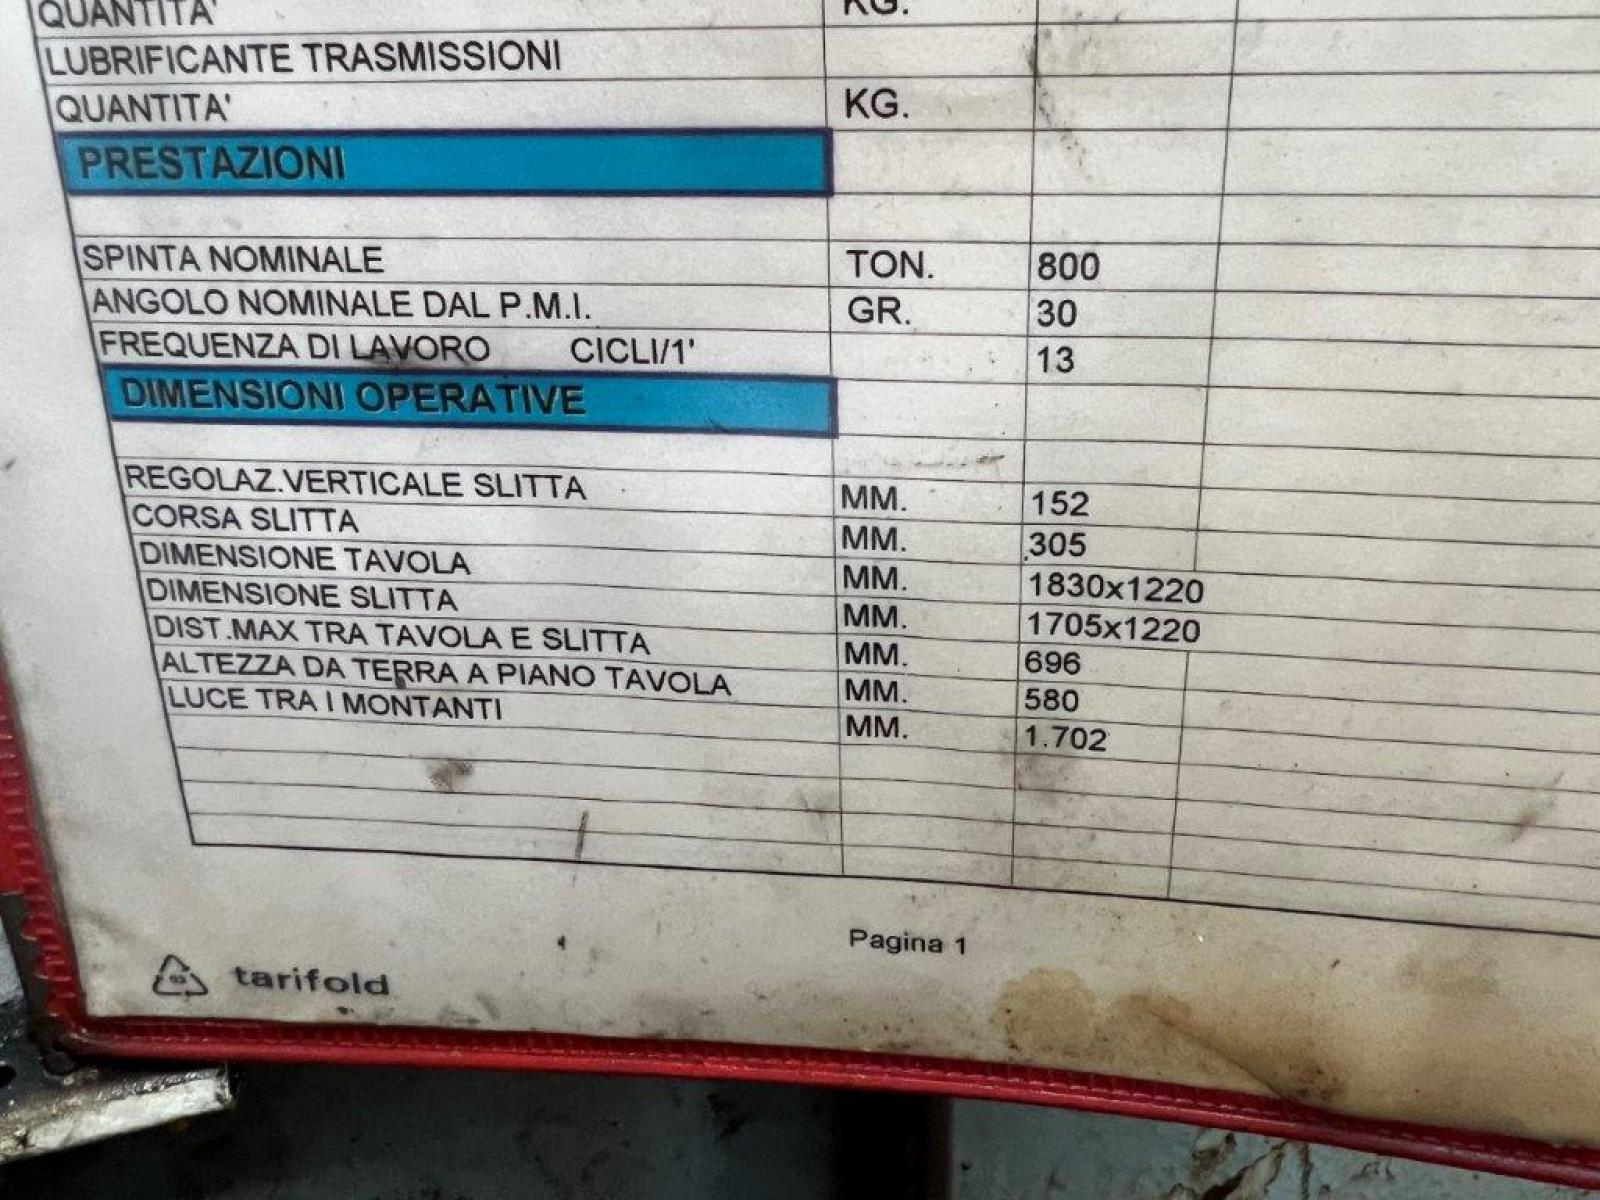 QUANTITA' KG.
LUBRIFICANTE TRASMISSIONI
QUANTITA' KG.
PRESTAZIONI
SPINTA NOMINALE TON. 800
ANGOLO NOMINALE DAL P.M.I. GR. 30
FREQUENZA DI LAVORO CICLI/1' 13
DIMENSIONI OPERATIVE
REGOLAZ.VERTICALE SLITTA MM. 152
CORSA SLITTA MM. 305
DIMENSIONE TAVOLA MM. 1830x1220
DIMENSIONE SLITTA MM. 1705x1220
DIST.MAX TRA TAVOLA E SLITTA MM. 696
ALTEZZA DA TERRA A PIANO TAVOLA MM. 580
LUCE TRA I MONTANTI MM. 1.702
Pagina 1
tarifold